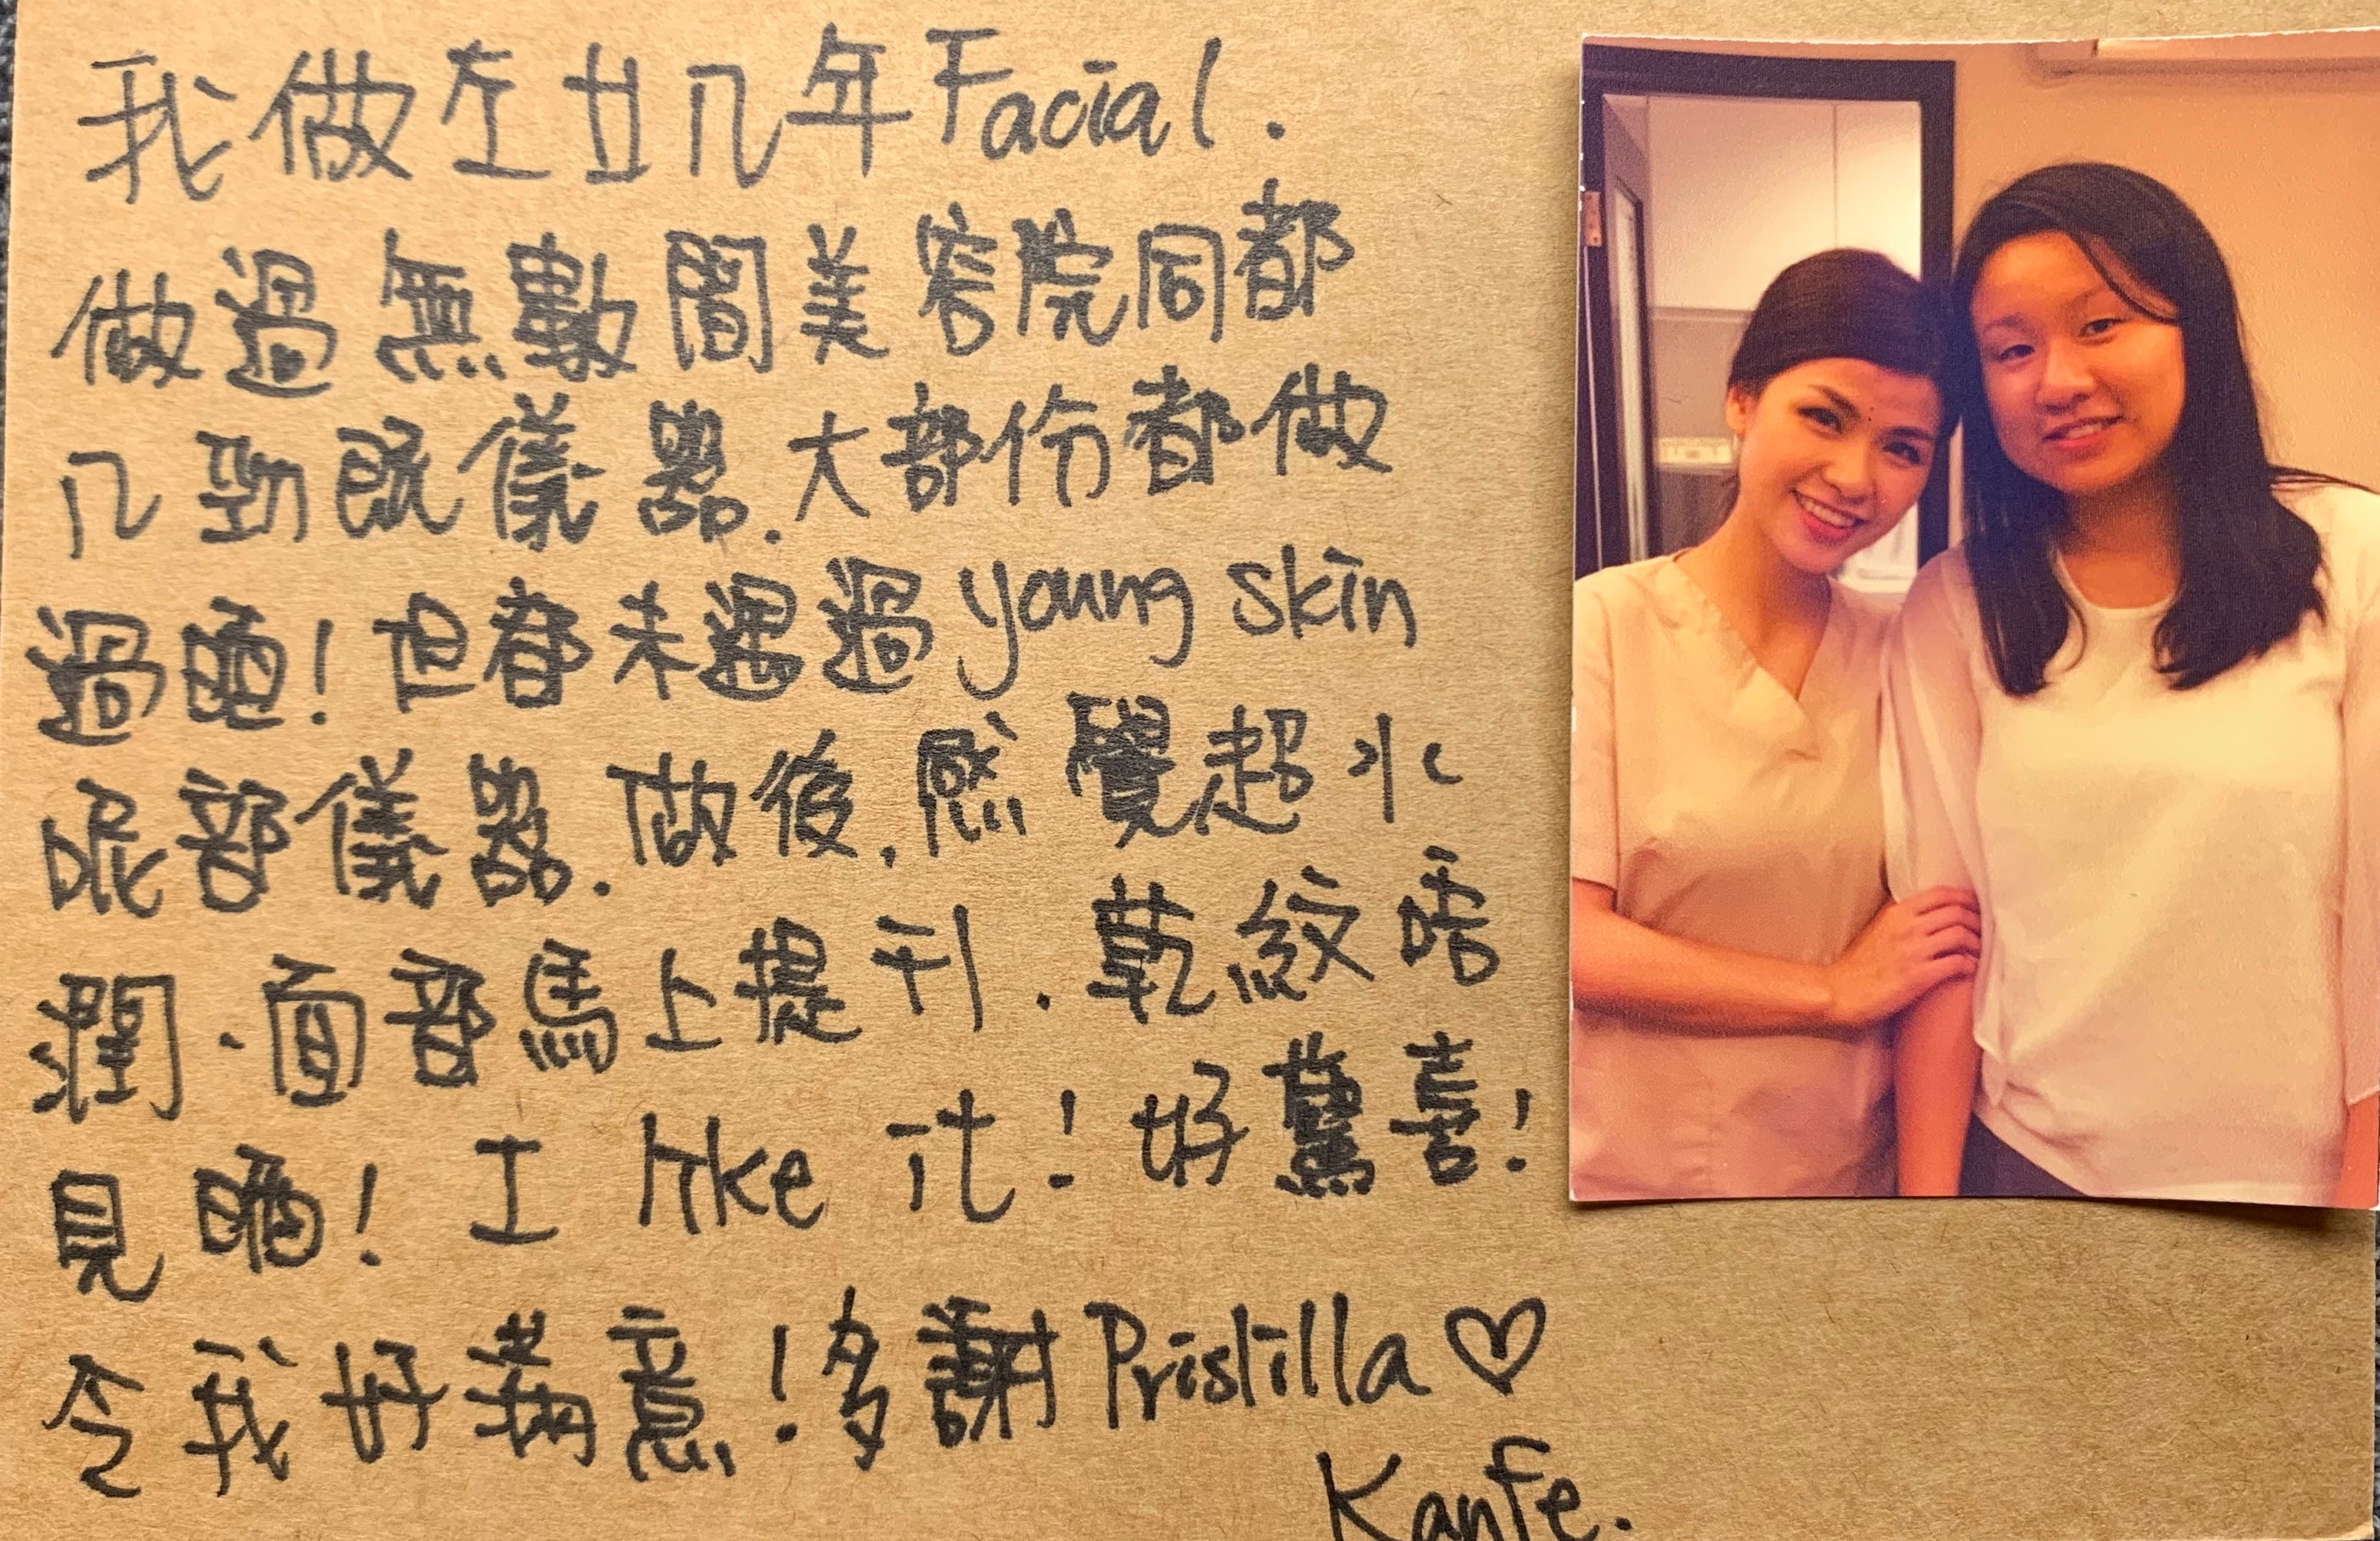 我做左廿几年Facial.
做過無數間美容院同都
几勁既儀器.大部份都做
過晒!但都未遇過young skin
呢部儀器.做後.感覺超水
潤.面部馬上提升.乾紋唔
見晒! I like it!好驚喜!
令我好滿意!多謝Pristilla♡
Kanfe.